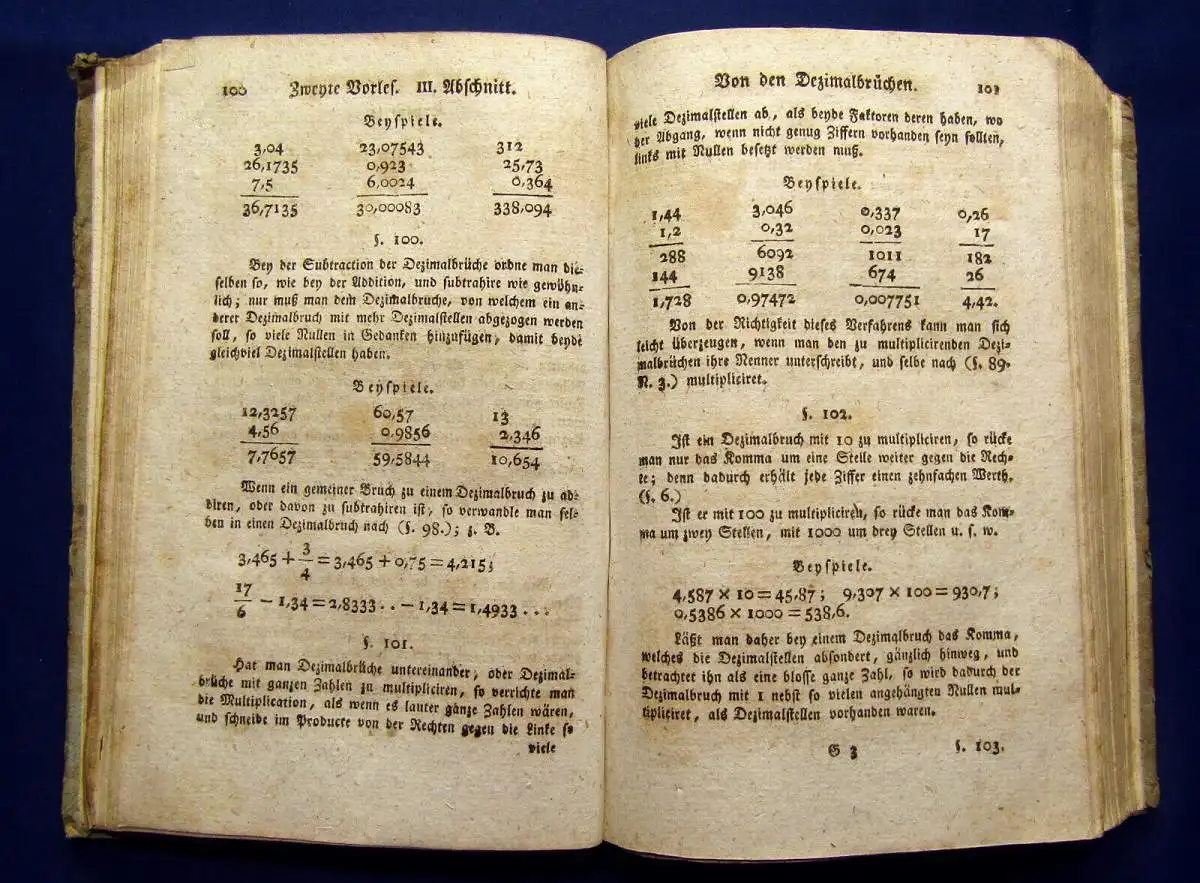 100 Zweyte Vorles. III. Abschnitt.
Beyspiele.
3,04 23,07543 312
26,1735 0,923 25,73
7,5 6,0024 0,364
36,7135 30,00083 338,094
§. 100.
Bey der Subtraction der Dezimalbrüche ordne man die-
selben so, wie bey der Addition, und subtrahire wie gewöhn-
lich; nur muß man dem Dezimalbrüche, von welchem ein an-
derer Dezimalbruch mit mehr Dezimalstellen abgezogen werden
soll, so viele Nullen in Gedanken hinzufügen, damit beyde
gleichviel Dezimalstellen haben.
Beyspiele.
12,3257 60,57 13
4,56 0,9856 2,346
7,7657 59,5844 10,654
Wenn ein gemeiner Bruch zu einem Dezimalbruch zu ad-
diren, oder davon zu subtrahiren ist, so verwandle man sel-
ben in einen Dezimalbruch nach (§. 98.); z. B.
3,465 + 3/4 = 3,465 + 0,75 = 4,215;
17/6 — 1,34 = 2,8333 . . — 1,34 = 1,4933 . . .
§. 101.
Hat man Dezimalbrüche untereinander, oder Dezimal-
brüche mit ganzen Zahlen zu multipliciren, so verrichte man
die Multiplication, als wenn es lauter ganze Zahlen wären,
und schneide im Producte von der Rechten gegen die Linke so
viele
Von den Dezimalbrüchen. 101
viele Dezimalstellen ab, als beyde Faktoren deren haben, wo
der Abgang, wenn nicht genug Ziffern vorhanden seyn sollten,
links mit Nullen besetzt werden muß.
Beyspiele.
1,44 3,046 0,337 0,26
1,2 0,32 0,023 17
288 6092 1011 182
144 9138 674 26
1,728 0,97472 0,007751 4,42.
Von der Richtigkeit dieses Verfahrens kann man sich
leicht überzeugen, wenn man den zu multiplicirenden Dezi-
malbrüchen ihre Nenner unterschreibt, und selbe nach (§. 89.
N. 3.) multipliciret.
§. 102.
Ist ein Dezimalbruch mit 10 zu multipliciren, so rücke
man nur das Komma um eine Stelle weiter gegen die Rech-
te; denn dadurch erhält jede Ziffer einen zehnfachen Werth.
(§. 6.)
Ist er mit 100 zu multipliciren, so rücke man das Kom-
ma um zwey Stellen, mit 1000 um drey Stellen u. s. w.
Beyspiele.
4,587 × 10 = 45,87; 9,307 × 100 = 930,7;
0,5386 × 1000 = 538,6.
Läßt man daher bey einem Dezimalbruch das Komma,
welches die Dezimalstellen absondert, gänzlich hinweg, und
betrachtet ihn als eine blosse ganze Zahl, so wird dadurch der
Dezimalbruch mit 1 nebst so vielen angehängten Nullen mul-
tipliciret, als Dezimalstellen vorhanden waren.
G 3 §. 103.